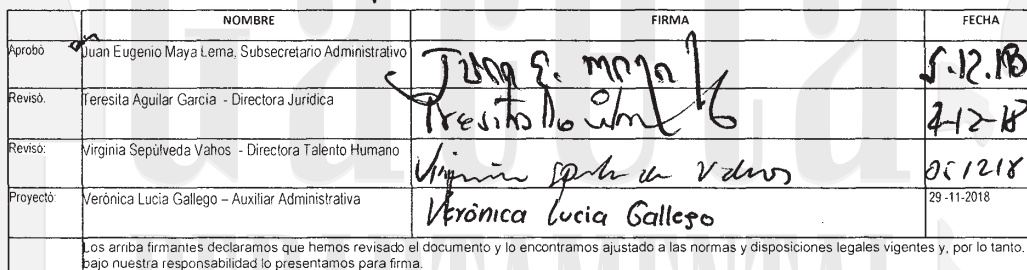 NOMBRE FIRMA FECHA
Aprobó Juan Eugenio Maya Lema, Subsecretario Administrativo Juan E. Maya L 5.12.18
Revisó. Teresita Aguilar García - Directora Jurídica Teresita Aguilar 4-12-18
Revisó: Virginia Sepúlveda Vahos - Directora Talento Humano Virginia Sepulveda Vahos 051218
Proyectó: Verónica Lucia Gallego – Auxiliar Administrativa Verónica Lucia Gallego 29-11-2018
Los arriba firmantes declaramos que hemos revisado el documento y lo encontramos ajustado a las normas y disposiciones legales vigentes y, por lo tanto.
bajo nuestra responsabilidad lo presentamos para firma.